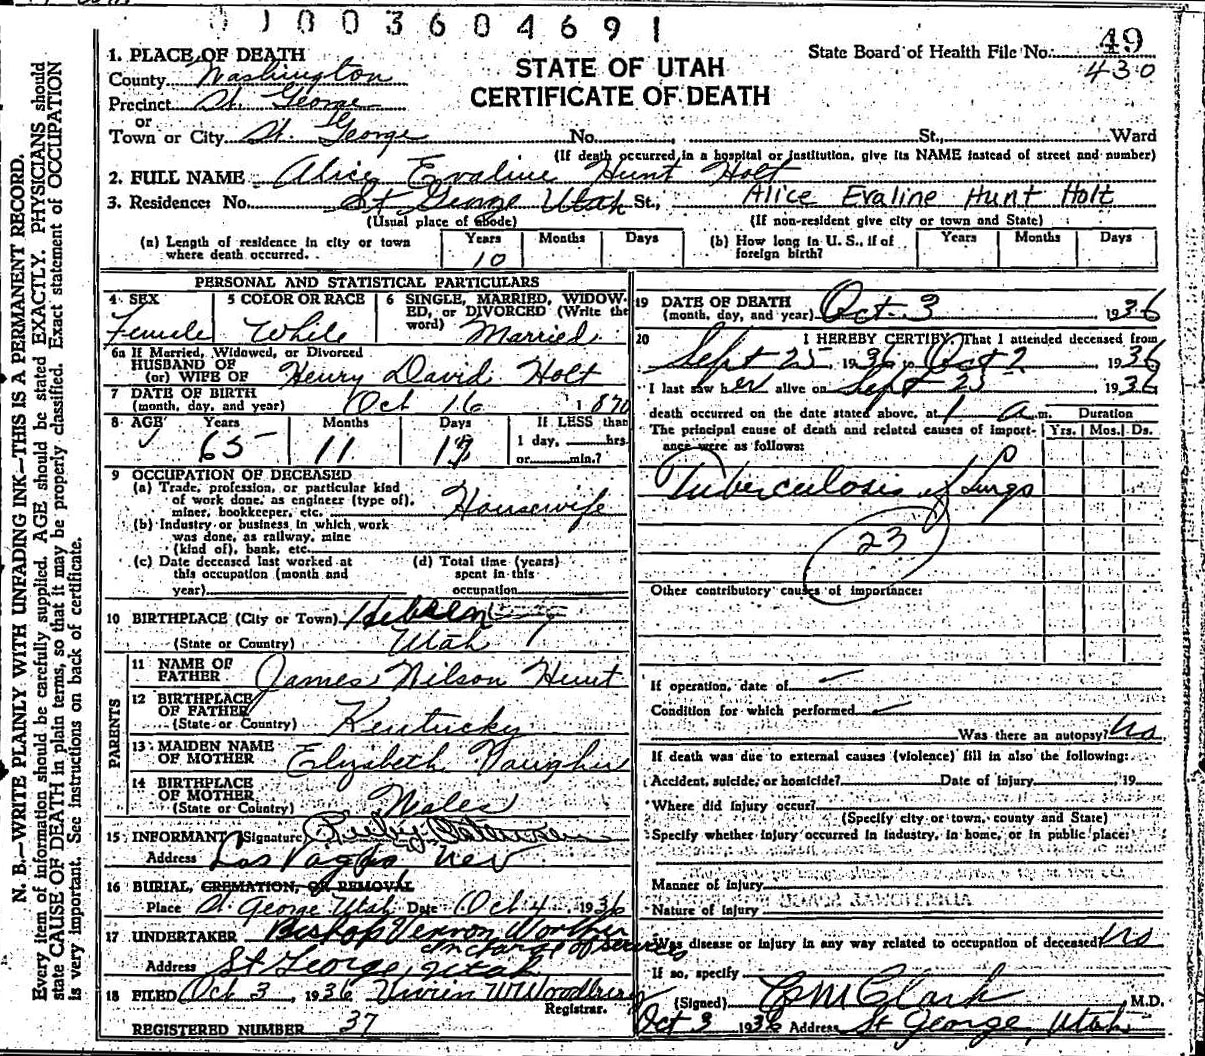 0 1 0 0 3 6 0 4 6 9 1
N. B.—WRITE PLAINLY WITH UNFADING INK—THIS IS A PERMANENT RECORD.
Every item of information should be carefully supplied. AGE should be stated EXACTLY. PHYSICIANS should
state CAUSE OF DEATH in plain terms, so that it may be properly classified. Exact statement of OCCUPATION
is very important. See instructions on back of certificate.
STATE OF UTAH
CERTIFICATE OF DEATH
State Board of Health File No. 49
430
1. PLACE OF DEATH
County Washington
Precinct St. George
or
Town or City St. George No. St., Ward
(If death occurred in a hospital or institution, give its NAME instead of street and number)
2. FULL NAME Alice Evaline Hunt Holt
3. Residence: No. St George Utah St., Alice Evaline Hunt Holt
(Usual place of abode) (If non-resident give city or town and State)
(a) Length of residence in city or town where death occurred. Years 10 Months Days
(b) How long in U. S., if of foreign birth? Years Months Days
PERSONAL AND STATISTICAL PARTICULARS
4 SEX Female
5 COLOR OR RACE White
6 SINGLE, MARRIED, WIDOWED, or DIVORCED (Write the word) Married
6a If Married, Widowed, or Divorced
HUSBAND OF
(or) WIFE OF Henry David Holt
7 DATE OF BIRTH
(month, day, and year) Oct 16 1870
8 AGE Years 65 Months 11 Days 17 If LESS than
1 day, hrs.
or min.?
9 OCCUPATION OF DECEASED
(a) Trade, profession, or particular kind
of work done, as engineer (type of),
miner, bookkeeper, etc. Housewife
(b) Industry or business in which work
was done, as railway, mine
(kind of), bank, etc.
(c) Date deceased last worked at
this occupation (month and
year)
(d) Total time (years)
spent in this
occupation
10 BIRTHPLACE (City or Town) Hebron
(State or Country) Utah
PARENTS
11 NAME OF FATHER James Wilson Hunt
12 BIRTHPLACE OF FATHER
(State or Country) Kentucky
13 MAIDEN NAME OF MOTHER Elizabeth
14 BIRTHPLACE OF MOTHER
(State or Country) Wales
15 INFORMANT (Signature)
Address Las Vagas Nev
16 BURIAL, CREMATION, OR REMOVAL
Place St George Utah Date Oct 4 1936
17 UNDERTAKER Bishop Vernon Worthen
in charge of services
Address St George, Utah
18 FILED Oct 3, 1936 Vivien W Woodbury
Registrar.
REGISTERED NUMBER 37
19 DATE OF DEATH
(month, day, and year) Oct 3 1936
20 I HEREBY CERTIFY, That I attended deceased from
Sept 25, 1936 to Oct 2 1936
I last saw her alive on Sept 25 1936
death occurred on the date stated above, at 1 a m.
Duration
Yrs. Mos. Ds.
The principal cause of death and related causes of importance were as follows:
Tuberculosis of Lungs
23
Other contributory causes of importance:
If operation, date of
Condition for which performed
Was there an autopsy? No
If death was due to external causes (violence) fill in also the following:
Accident, suicide, or homicide? Date of injury 19
Where did injury occur?
(Specify city or town, county and State)
Specify whether injury occurred in industry, in home, or in public place:
Manner of injury
Nature of injury
Was disease or injury in any way related to occupation of deceased? No
If so, specify
(Signed) M.D.
Oct 3 1936 Address St George, Utah